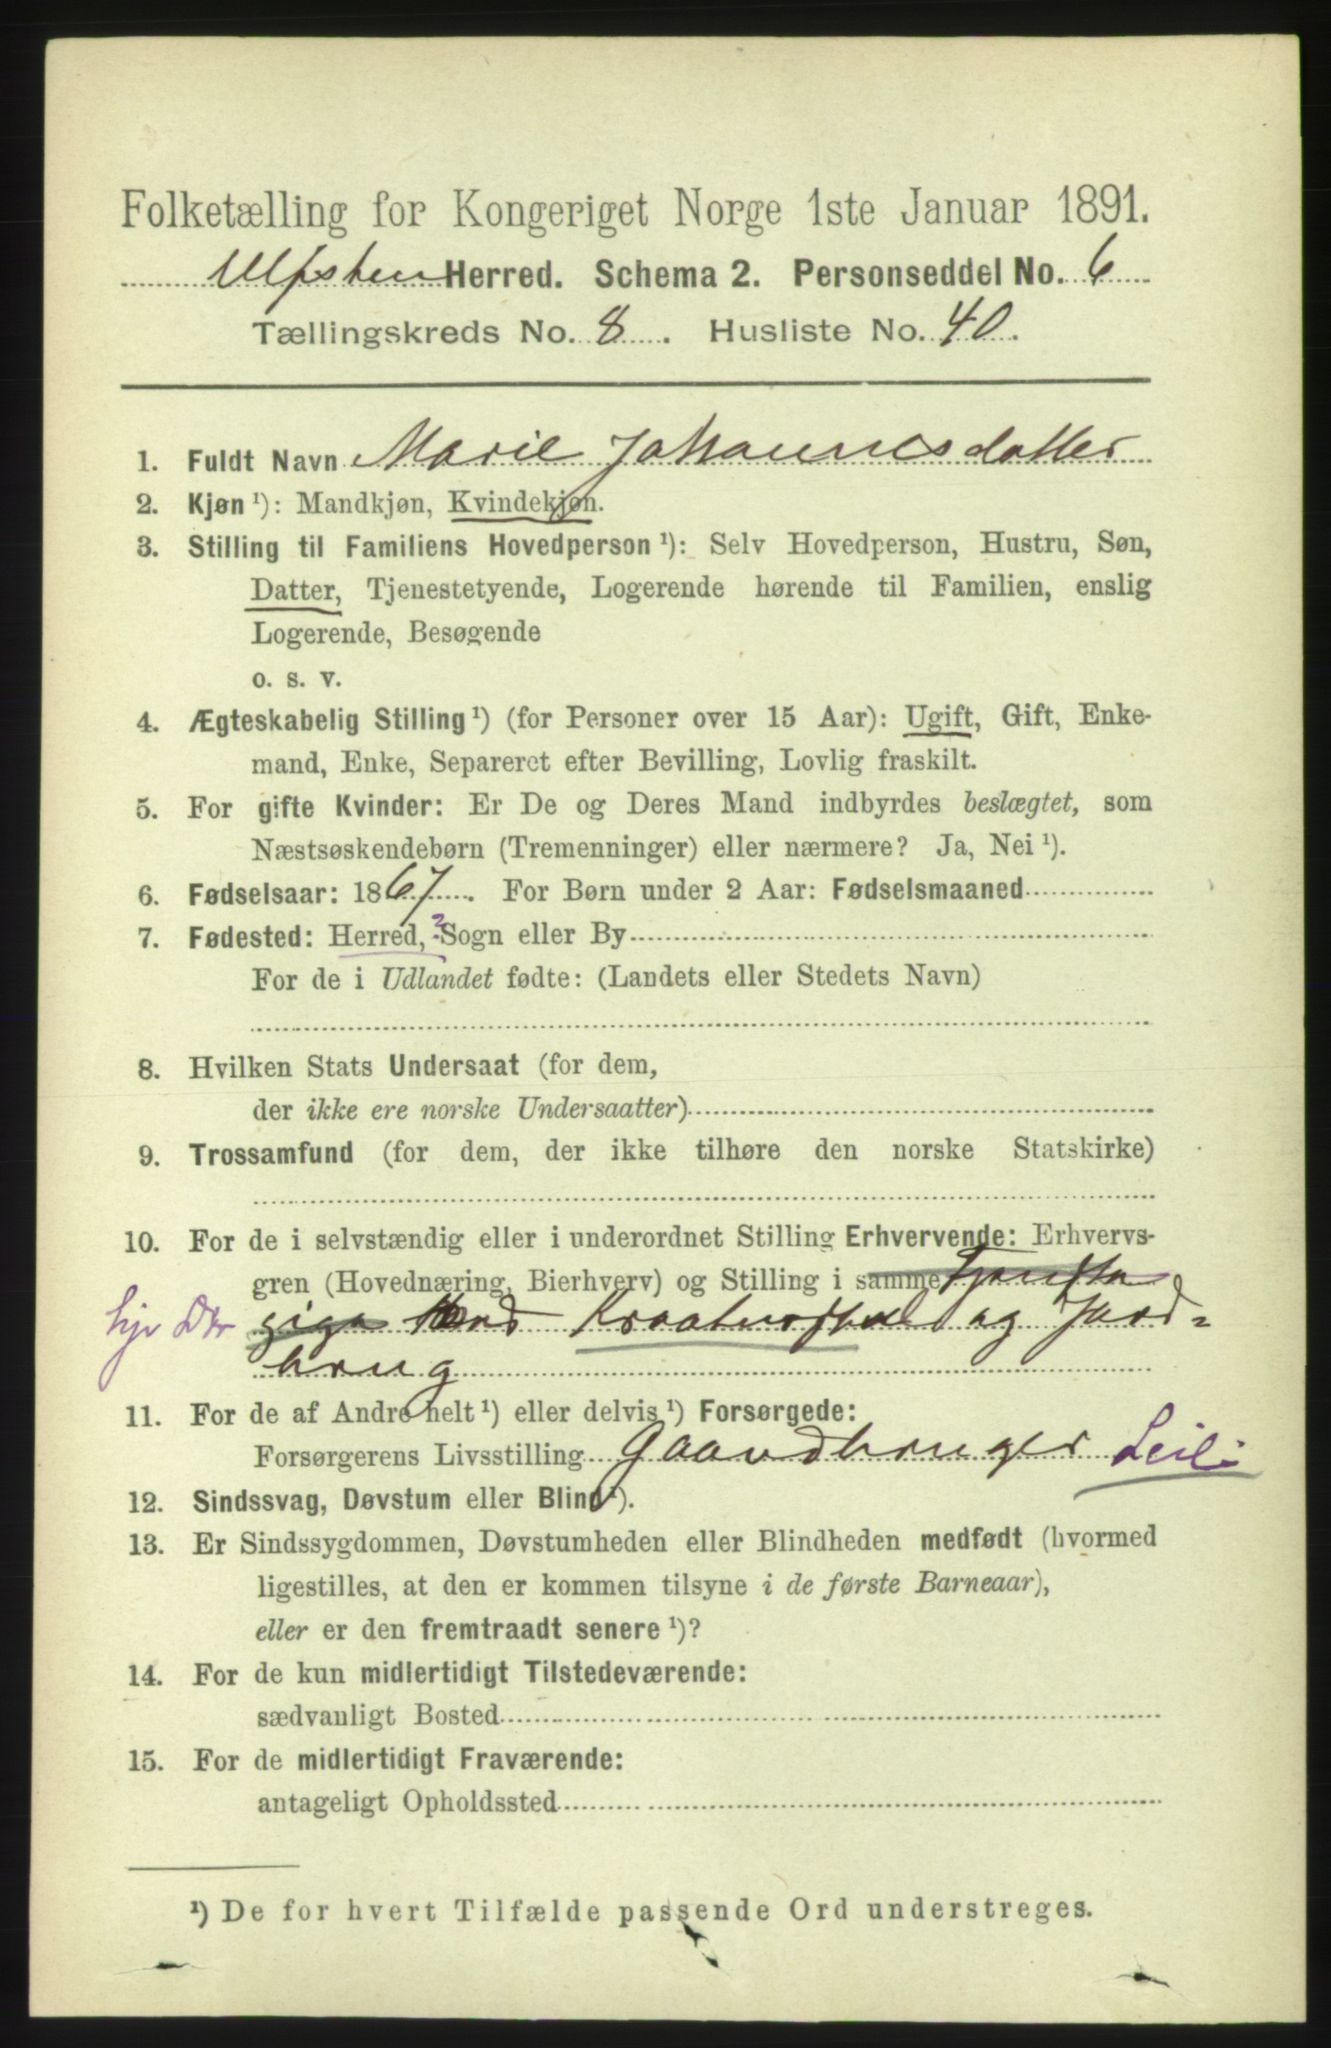 Folketælling for Kongeriget Norge 1ste Januar 1891.
Ulfsten Herred. Schema 2. Personseddel No. 6
Tællingskreds No. 8. Husliste No. 40.
1. Fuldt Navn Marie Johannesdatter
2. Kjøn ¹): Mandkjøn, Kvindekjøn.
3. Stilling til Familiens Hovedperson ¹): Selv Hovedperson, Hustru, Søn,
Datter, Tjenestetyende, Logerende hørende til Familien, enslig
Logerende, Besøgende
o. s. v.
4. Ægteskabelig Stilling ¹) (for Personer over 15 Aar): Ugift, Gift, Enke-
mand, Enke, Separeret efter Bevilling, Lovlig fraskilt.
5. For gifte Kvinder: Er De og Deres Mand indbyrdes beslægtet, som
Næstsøskendebørn (Tremenninger) eller nærmere? Ja, Nei ¹).
6. Fødselsaar: 1867. For Børn under 2 Aar: Fødselsmaaned
7. Fødested: Herred, ? Sogn eller By
For de i Udlandet fødte: (Landets eller Stedets Navn)
8. Hvilken Stats Undersaat (for dem,
der ikke ere norske Undersaatter)
9. Trossamfund (for dem, der ikke tilhøre den norske Statskirke)
10. For de i selvstændig eller i underordnet Stilling Erhvervende: Erhvervs-
gren (Hovednæring, Bierhverv) og Stilling i samme
hjv Dtr Kreaturstel og Jord-
brug
11. For de af Andre helt ¹) eller delvis ¹) Forsørgede:
Forsørgerens Livsstilling Gaardbruger Leil:
12. Sindssvag, Døvstum eller Blind ¹).
13. Er Sindssygdommen, Døvstumheden eller Blindheden medfødt (hvormed
ligestilles, at den er kommen tilsyne i de første Barneaar),
eller er den fremtraadt senere ¹)?
14. For de kun midlertidigt Tilstedeværende:
sædvanligt Bosted
15. For de midlertidigt Fraværende:
antageligt Opholdssted
¹) De for hvert Tilfælde passende Ord understreges.